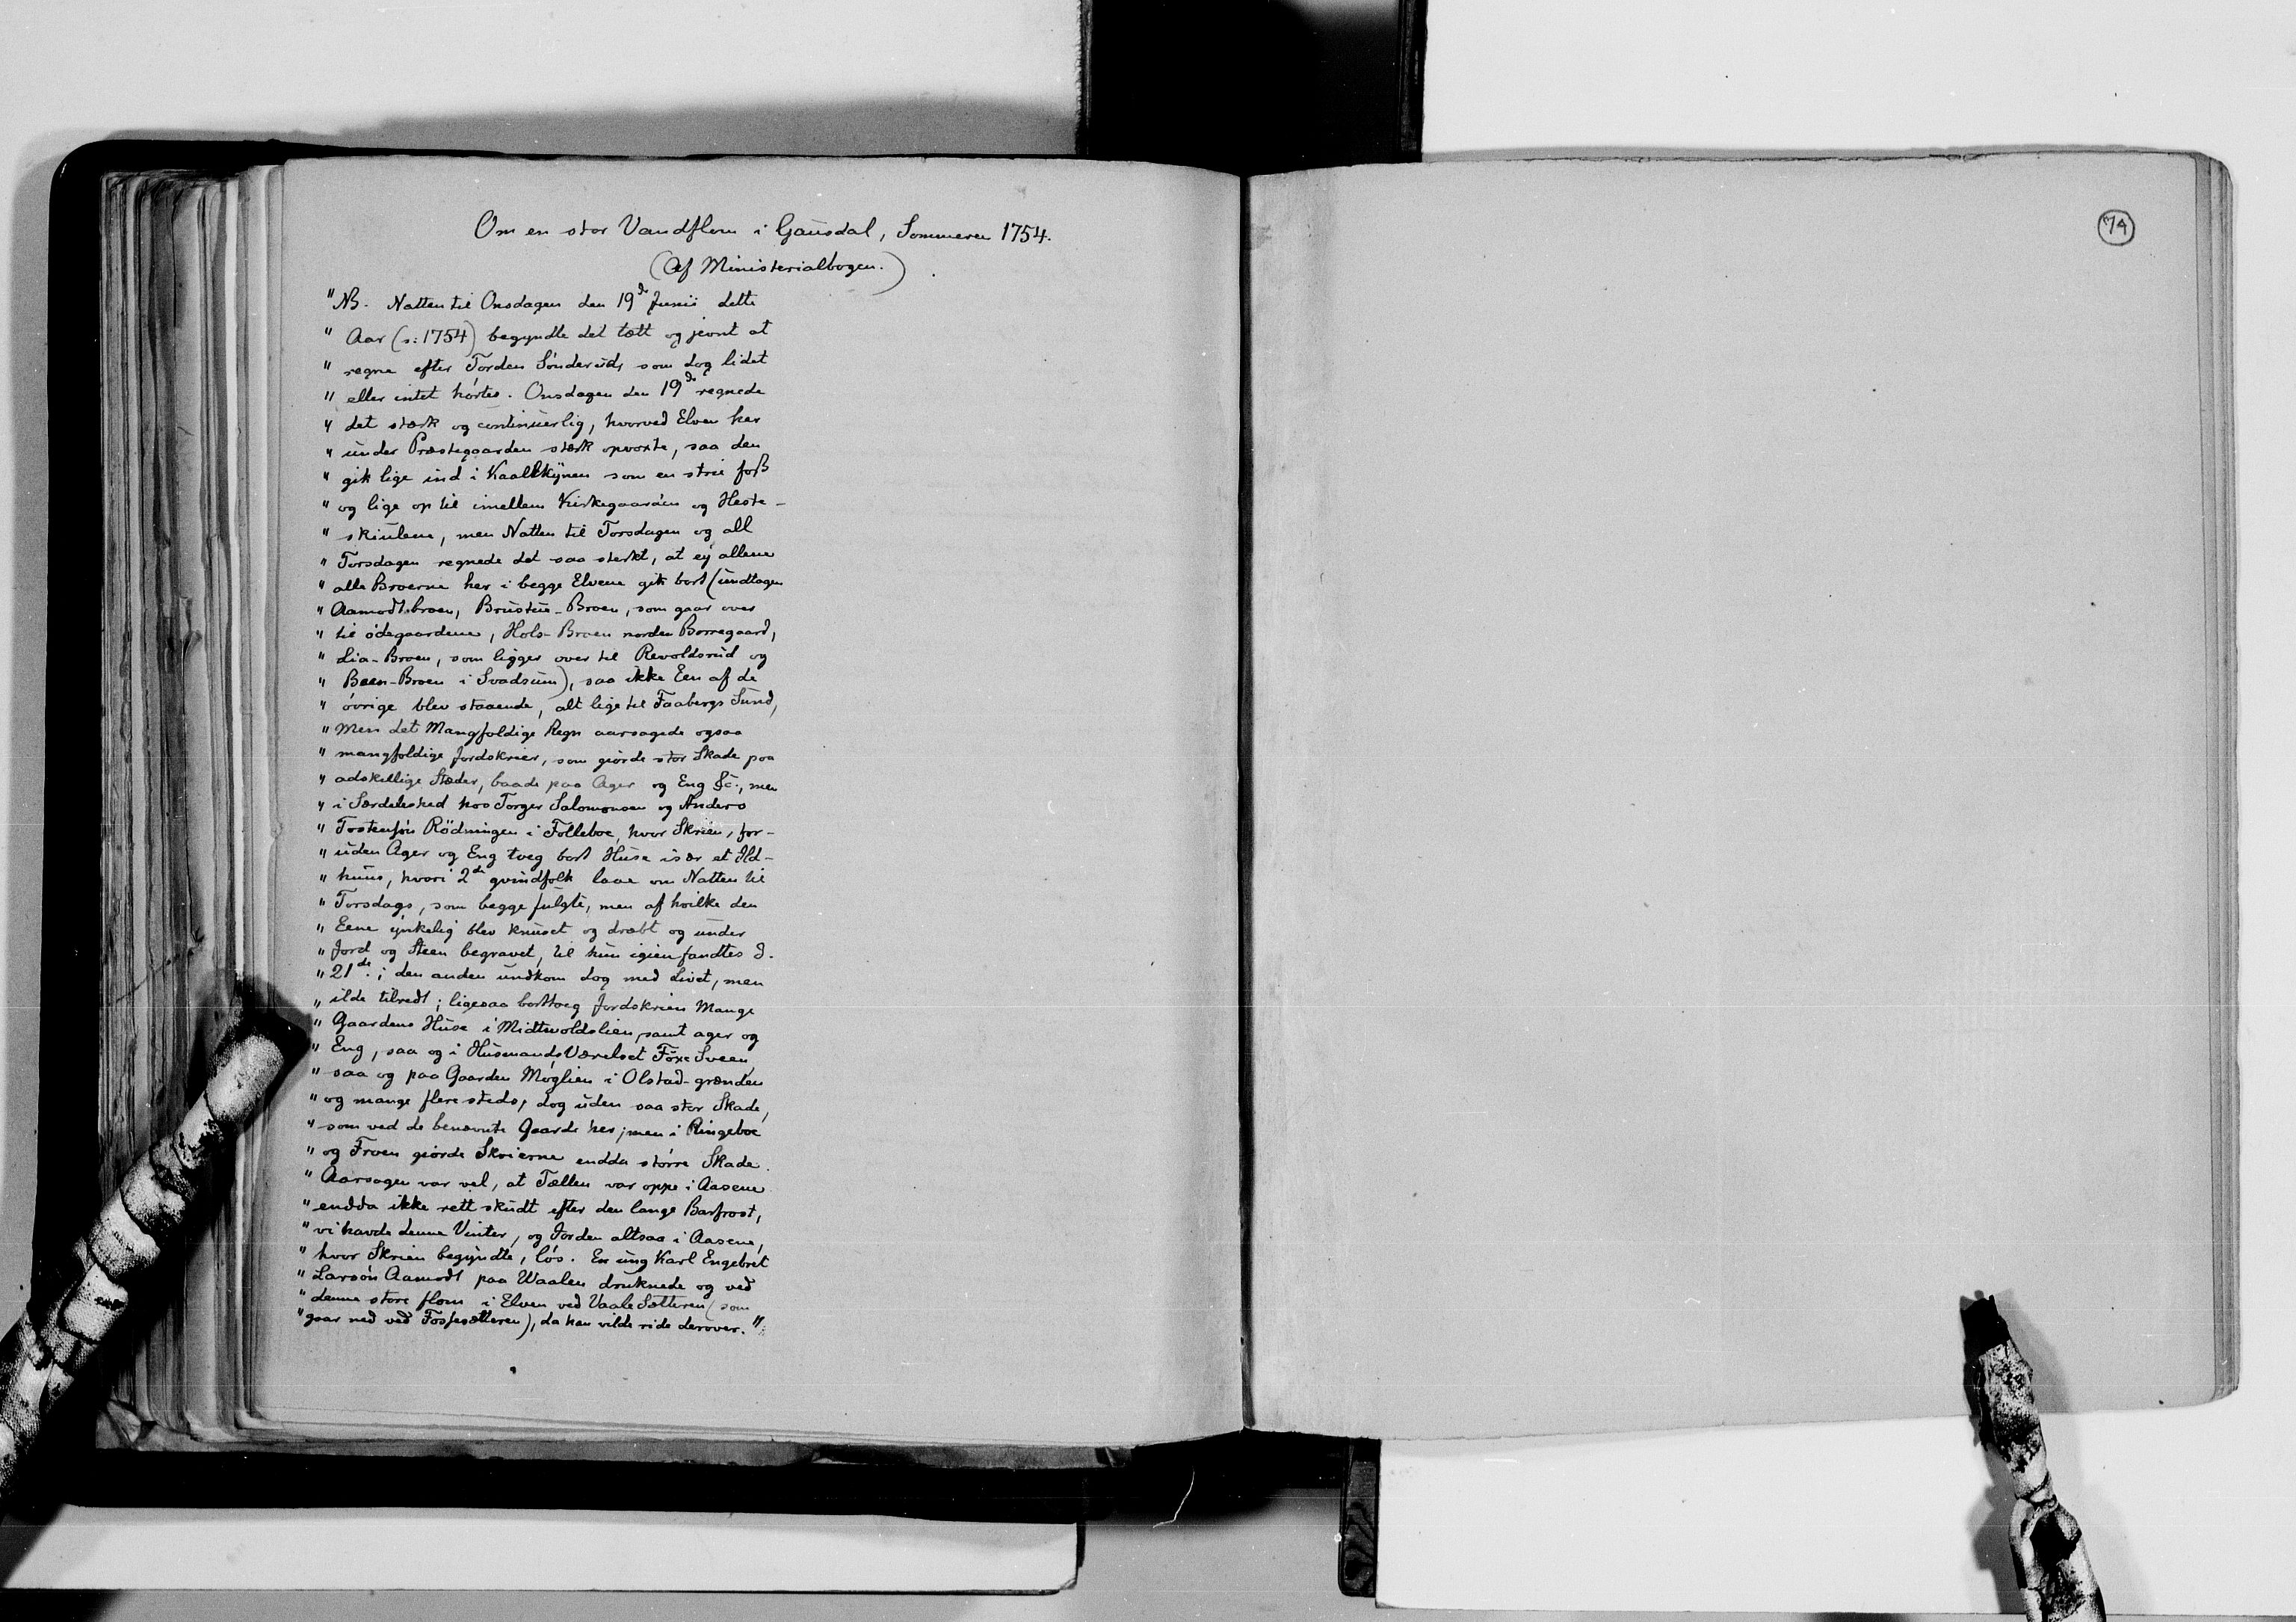 Om en stor Vandflom i Gausdal, Sommeren 1754.
(Af Ministerialbogen.)
"NB. Natten til Onsdagen den 19de Junii dette
" Aar (ɔ: 1754) begyndte det tætt og jevnt at
" regne efter Torden Sönderuds som dog lidet
" eller intet hörtes. Onsdagen den 19de regnede
" det stærk og continuerlig, hvorved Elven her
" under Præstegaarden stærk opvoxte, saa den
" gik lige ind i Kaal som en strie foß
" og lige op til imellem Kirkegaarden og Heste-
" skiulene, men Natten til Torsdagen og all
" Torsdagen regnede det saa sterkt, at eÿ allene
" alle Broerne her i begge Elvene gik bort (undtagen
" Aamodtbroen, Brustue-Broen, som gaar over
" til ödegaardene, Hols-Broen norden Borregaard,
" Lia-Broen, som ligger over til Revoldsrud og
" Been-Broen i Svadsum), saa ikke Een af de
" övrige blev staaende, alt lige til Faabergs Sund,
" Men det Mangfoldige Regn aarsagede ogsaa
" mangfoldige Jordskrier, som giorde stor Skade paa
" adskillige Stæder, baade paa Ager og Eng &c., men
" i Særdeleshed hos Torger Salomonsen og Anders
" Tostensön Rödningen i Folleboe, hvor Skrien, for-
" uden Ager og Eng tveg bort Huse især et Ild-
" huus, hvori 2de qvindfolk laae om Natten til
" Torsdags, som begge fulgte, men af hvilke den
" Eene ynkelig blev knuset og dræbt og under
" Jord og Steen begravet, til hun igienfandtes d.
" 21de; den anden undkom dog med Livet, men
" ilde tilredt; ligesaa borttveg Jordskrien Mange
" Gaardens Huse i Midtvoldslien, samt ager og
" Eng, saa og i HusmandsVærelset Föxe Sveen,
" saa og paa Gaarden Möglien i Olstad-grænden
" og mange flere steds, dog uden saa stor Skade,
" som ved de benævnte Gaarde her; men i Ringeboe
" og Froen giorde Skrierne endda större Skade.
" Aarsagen var vel, at Tællen var oppe i Aasene
" endda ikke rett skudt efter den lange Barfrost,
" vi havde denne Vinter, og Jorden altsaa i Aasene,
" hvor Skrien begyndte, lös. En ung Karl Engebret
" Larsön Aamodt paa Waalen druknede og ved
" denne store flom i Elven ved Vaale Sætteren (som
" gaar ned ved Fossesætteren), da han vilde ride derover."
74